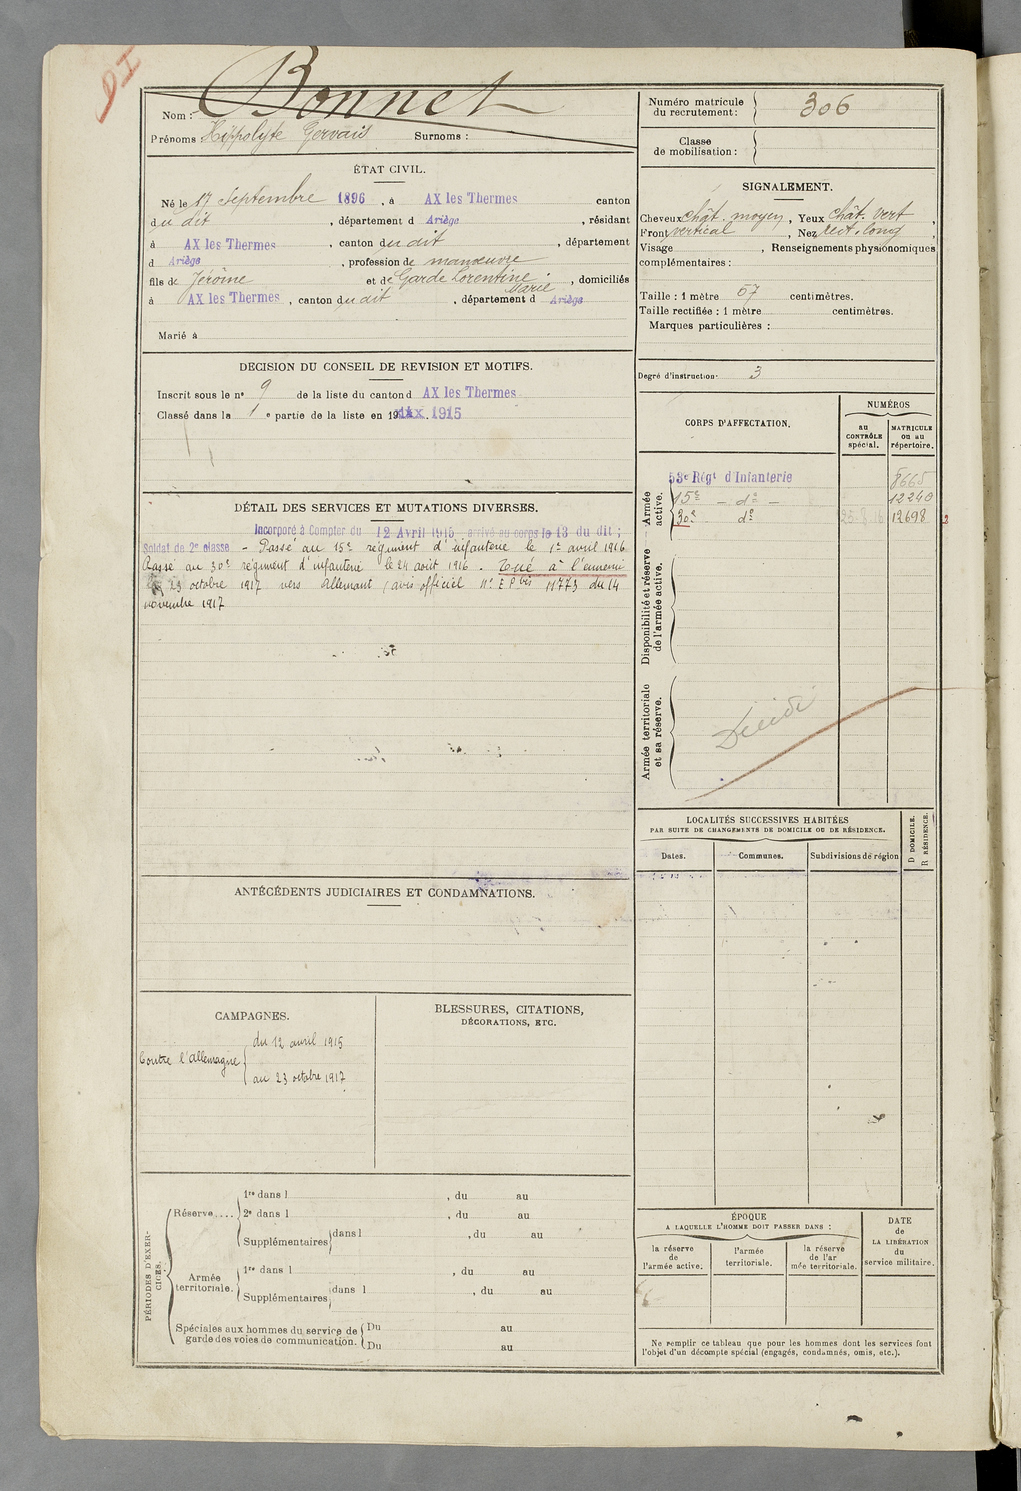 DI
Nom : Bonnet
Prénoms Hippolyte Gervais Surnoms :
Numéro matricule du recrutement : 306
Classe de mobilisation :
ÉTAT CIVIL.
Né le 17 Septembre 1896, à AX les Thermes canton
du dit, département d Ariège, résidant
à AX les Thermes, canton du dit, département
d Ariège, profession de manœuvre
fils de Jérôme et de Garde Lorentine Marie, domiciliés
à AX les Thermes, canton du dit, département d Ariège
Marié à
SIGNALEMENT.
Cheveux chât. moyen, Yeux chât. vert,
Front vertical, Nez rect. long,
Visage , Renseignements physionomiques
complémentaires :
Taille : 1 mètre 57 centimètres.
Taille rectifiée : 1 mètre centimètres.
Marques particulières :
Degré d'instruction 3
DÉCISION DU CONSEIL DE REVISION ET MOTIFS.
Inscrit sous le nº 9 de la liste du canton d AX les Thermes
Classé dans la 1e partie de la liste en 19 1915
CORPS D'AFFECTATION.
NUMÉROS
au CONTRÔLE spécial.
MATRICULE ou au répertoire.
Armée active.
53e Régt d'Infanterie 8665
15e - dº - 12240
30e dº 12698
Disponibilité et réserve de l'armée active.
Armée territoriale et sa réserve.
DÉTAIL DES SERVICES ET MUTATIONS DIVERSES.
Incorporé à Compter du 12 Avril 1915 arrivé au corps le 13 du dit ;
Soldat de 2e classe - Passé au 15e régiment d'infanterie le 1er avril 1916
Passé au 30e régiment d'infanterie le 24 août 1916. Tué à l'ennemi
le 23 octobre 1917 vers Allemant (avis officiel Nº E P bis 11773 du 14
novembre 1917
LOCALITÉS SUCCESSIVES HABITÉES
PAR SUITE DE CHANGEMENTS DE DOMICILE OU DE RÉSIDENCE.
Dates. Communes. Subdivisions de région
D DOMICILE.
R RÉSIDENCE.
ANTÉCÉDENTS JUDICIAIRES ET CONDAMNATIONS.
CAMPAGNES.
Contre l'allemagne
du 12 avril 1915
au 23 octobre 1917
BLESSURES, CITATIONS,
DÉCORATIONS, ETC.
PÉRIODES D'EXERCICES.
Réserve....
1re dans l , du au
2e dans l , du au
Supplémentaires dans l , du au
Armée territoriale.
1re dans l , du au
Supplémentaires dans l , du au
Spéciales aux hommes du service de Du au
garde des voies de communication. Du au
ÉPOQUE
A LAQUELLE L'HOMME DOIT PASSER DANS :
la réserve de l'armée active.
l'armée territoriale.
la réserve de l'armée territoriale.
DATE
de
LA LIBÉRATION
du
service militaire.
Ne remplir ce tableau que pour les hommes dont les services font
l'objet d'un décompte spécial (engagés, condamnés, omis, etc.).